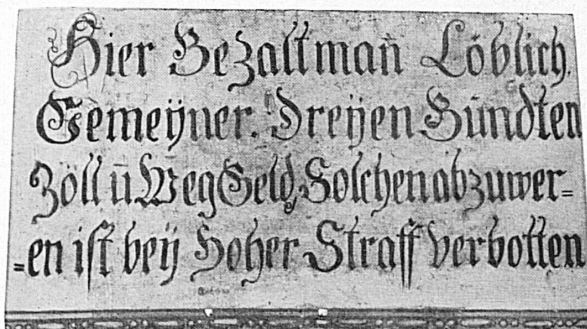 Hier Bezalt man Löblich.
Gemeÿner. Dreÿen Bündten
Zöll ū Weg Geld, Solchen abzuwer=
=en ist beÿ Hoher Straff verbotten